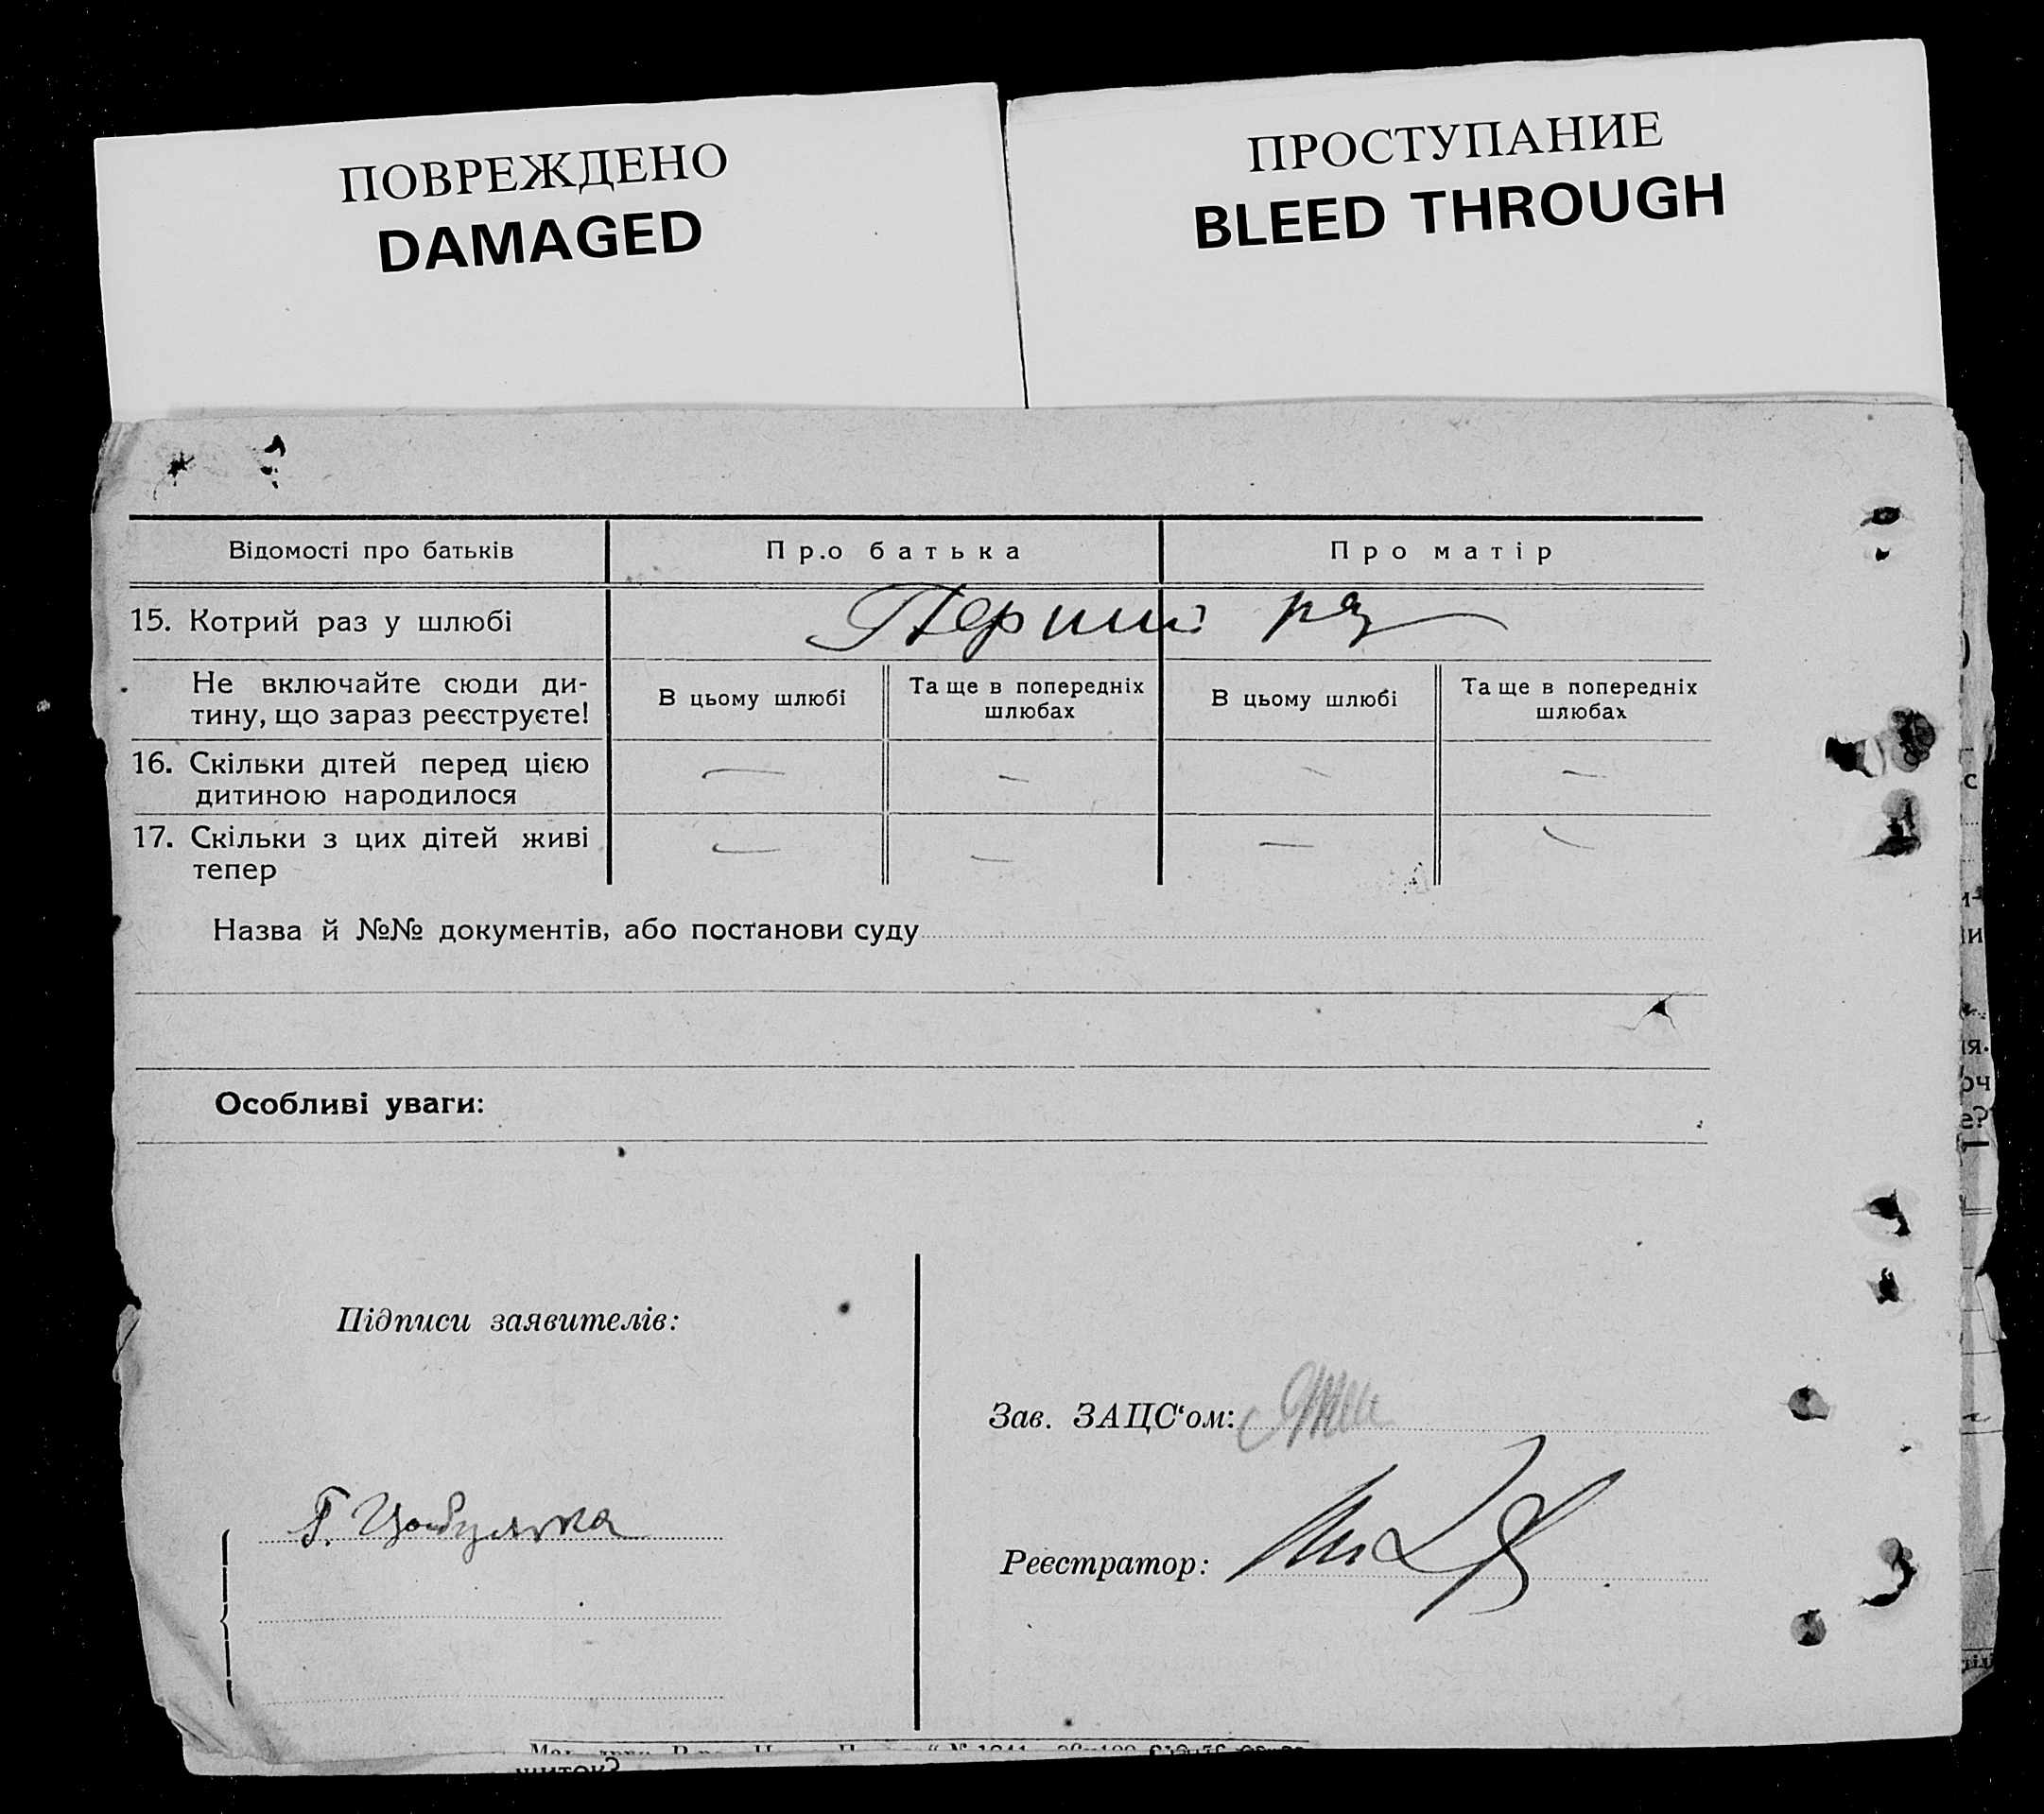 ПОВРЕЖДЕНО
DAMAGED
ПРОСТУПАНИЕ
BLEED THROUGH
Відомості про батьків
Про батька
Про матір
15. Котрий раз у шлюбі
Перший раз
Не включайте сюди ди-
тину, що зараз реєструєте!
В цьому шлюбі
Та ще в попередніх
шлюбах
В цьому шлюбі
Та ще в попередніх
шлюбах
16. Скільки дітей перед цією
дитиною народилося
— — — —
17. Скільки з цих дітей живі
тепер
— — — —
Назва й №№ документів, або постанови суду
Особливі уваги:
Підписи заявителів:
Зав. ЗАЦС‘ом:
Г. Цыбулька
Реєстратор: